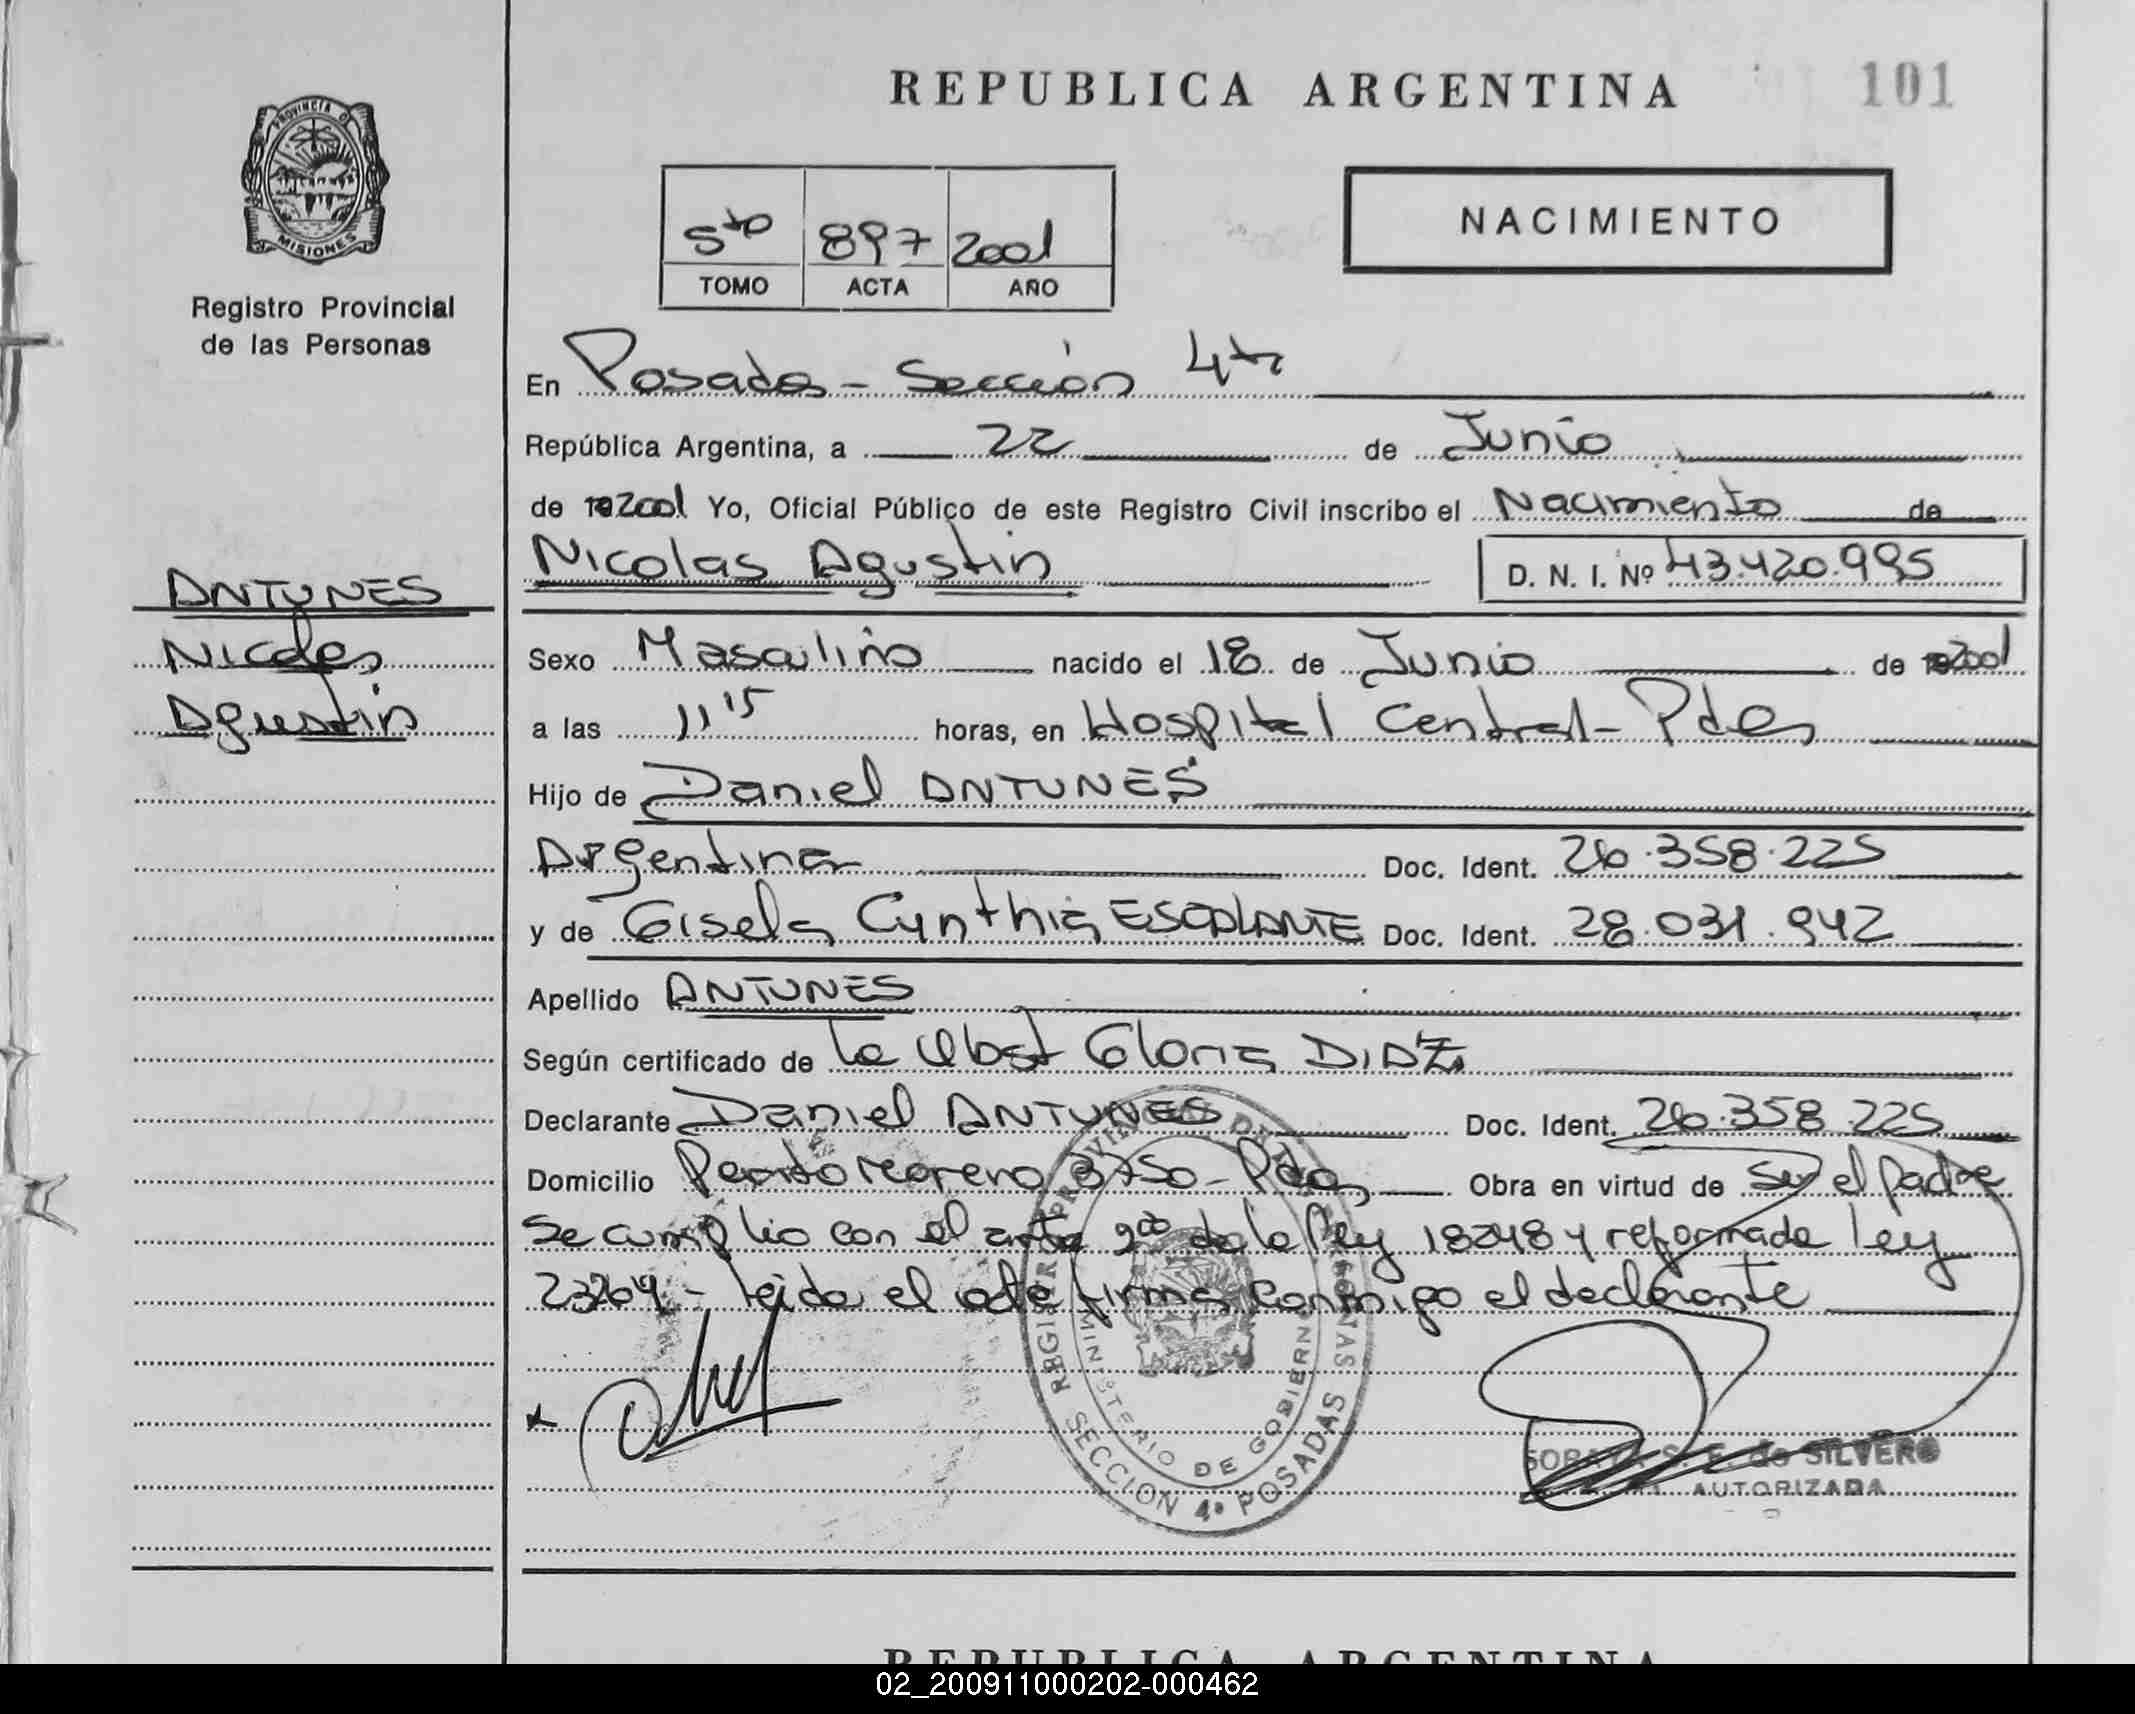 REPUBLICA ARGENTINA
101
PROVINCIA D
MISIONES
Registro Provincial
de las Personas
5to 897 2001
TOMO ACTA AÑO
NACIMIENTO
En Posadas - Sección 4ta
República Argentina, a 22 de Junio
de 2001 Yo, Oficial Público de este Registro Civil inscribo el Nacimiento de
Nicolas Agustin D. N. I. Nº 43.420.995
ANTUNES
Nicolas
Agustin
Sexo Masculino nacido el 18 de Junio de 2001
a las 11 15 horas, en Hospital Central - Pdas
Hijo de Daniel ANTUNES
Argentina Doc. Ident. 26.358.225
y de Gisela Cynthia ESCALANTE Doc. Ident. 28.031.942
Apellido ANTUNES
Según certificado de la Obst Gloria DIAZ
Declarante Daniel ANTUNES Doc. Ident. 26.358.225
Domicilio Perito Moreno 3750 - Pdas Obra en virtud de ser el padre
Se cumplio con el arto 2do de la ley 18248 y reformada ley
23264 - leida el acta firma conmigo el declarante
REGISTRO PROVINCIAL DE LAS PERSONAS
MINISTERIO DE GOBIERNO
SECCION 4ª POSADAS
SORAYA S. E. de SILVERO
AUTORIZADA
REPUBLICA ARGENTINA
02_200911000202-000462